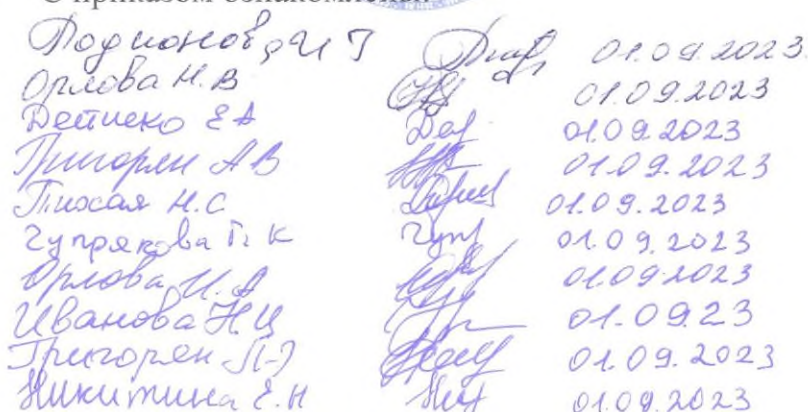 С приказом ознакомлены:
Родионова И Г 01.09.2023.
Орлова Н.В 01.09.2023
Детиенко Е А 01.09.2023
Григорян А В 01.09.2023
Тихая Н.С 01.09.2023
К 01.09.2023
Орлова И.А 01.09.2023
Иванова Н Ц 01.09.23
Григорян 01.09.2023
Никитина Е.Н 01.09.2023